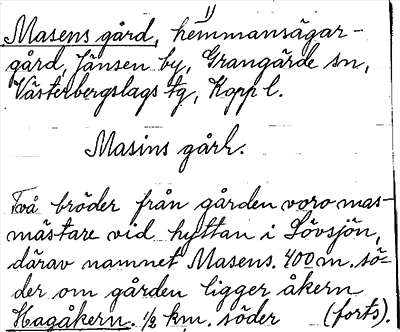 1)
Masens gård, hemmansägar-
gård, Jänsen by, Grangärde sn,
Västerbergslags tg, Kopp l.
Masins gård.
Två bröder från gården voro mas-
mästare vid hyttan i Lövsjön,
därav namnet Masens. 400 m. sö-
der om gården ligger åkern
Hagåkern. 1/2 km. söder (forts).